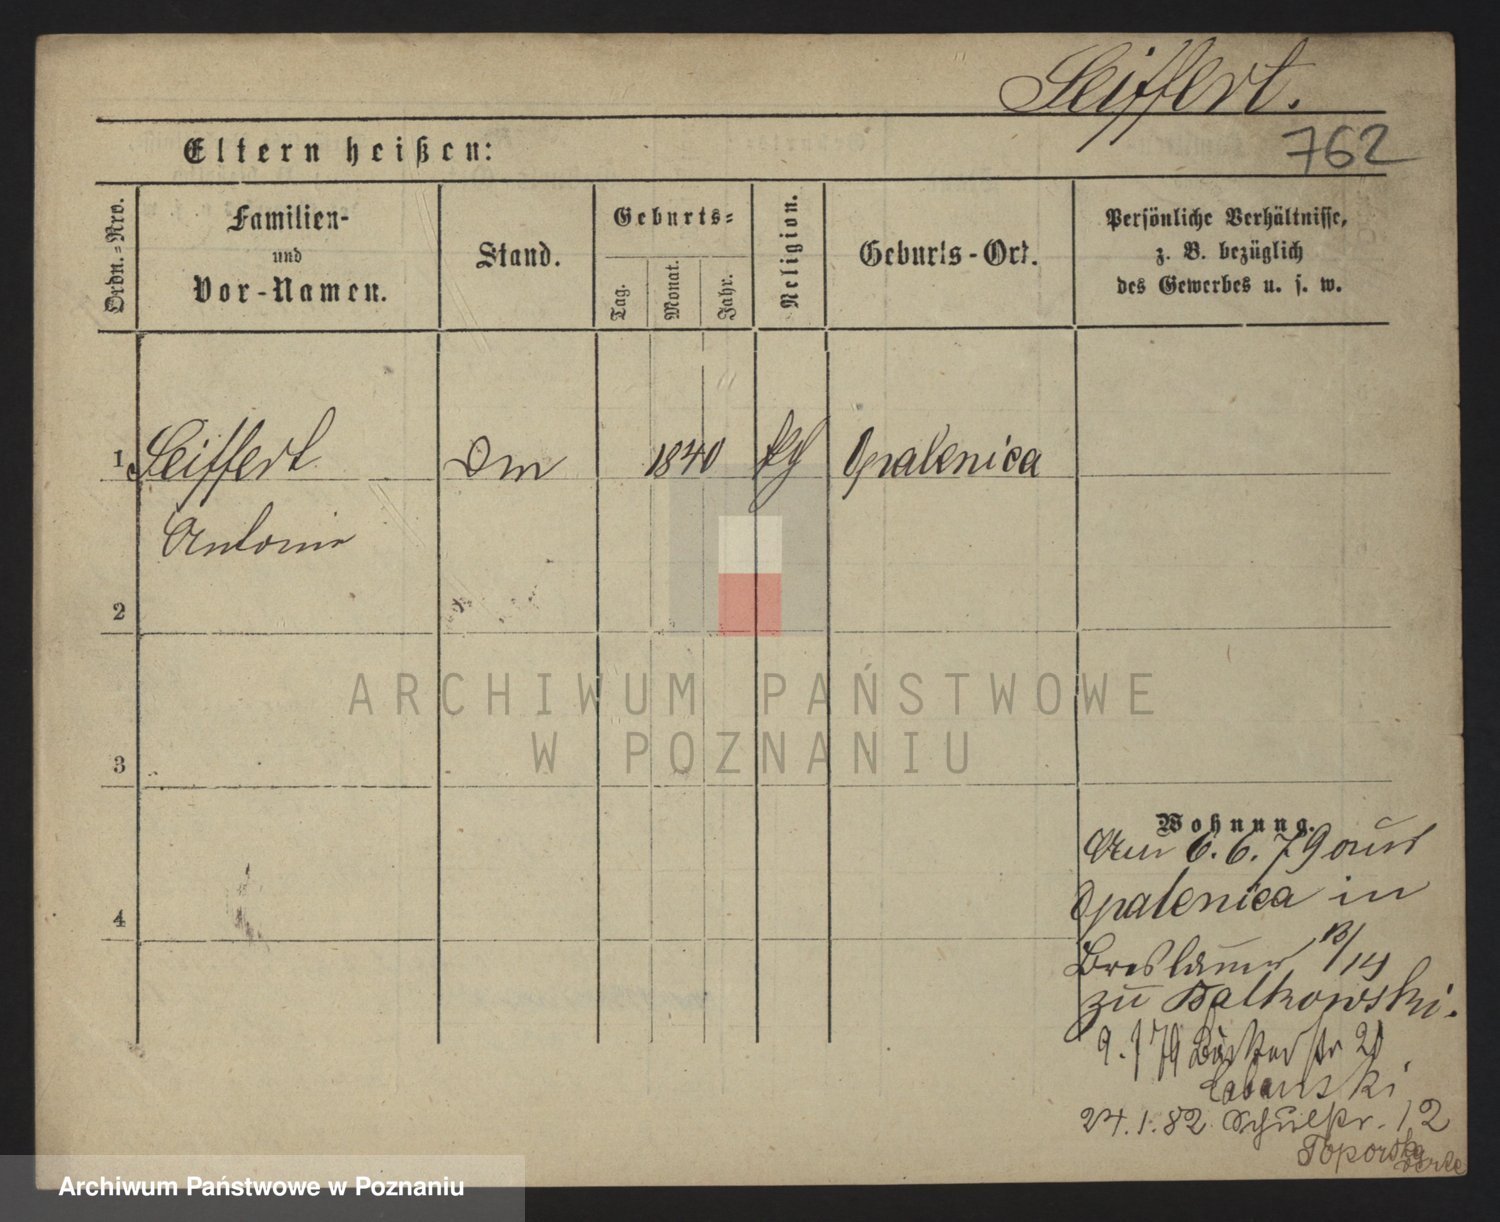 Seiffert.
762
Eltern heißen:
Ordn.=Nro.
Familien-
und
Vor-Namen.
Stand.
Geburts=
Tag.
Monat.
Jahr.
Religion.
Geburts-Ort.
Persönliche Verhältnisse,
z. B. bezüglich
des Gewerbes u. s. w.
1 Seiffert 1840 Opalenica
Antonie
2
3
4
ARCHIWUM PAŃSTWOWE
W POZNANIU
Wohnung.
Am 6. 6. 79 aus
Opalenica in
Breslauer 13/14
zu Batkowski.
79 Bäckerstr 21
24.1.82 Schulstr. 12
Archiwum Państwowe w Poznaniu